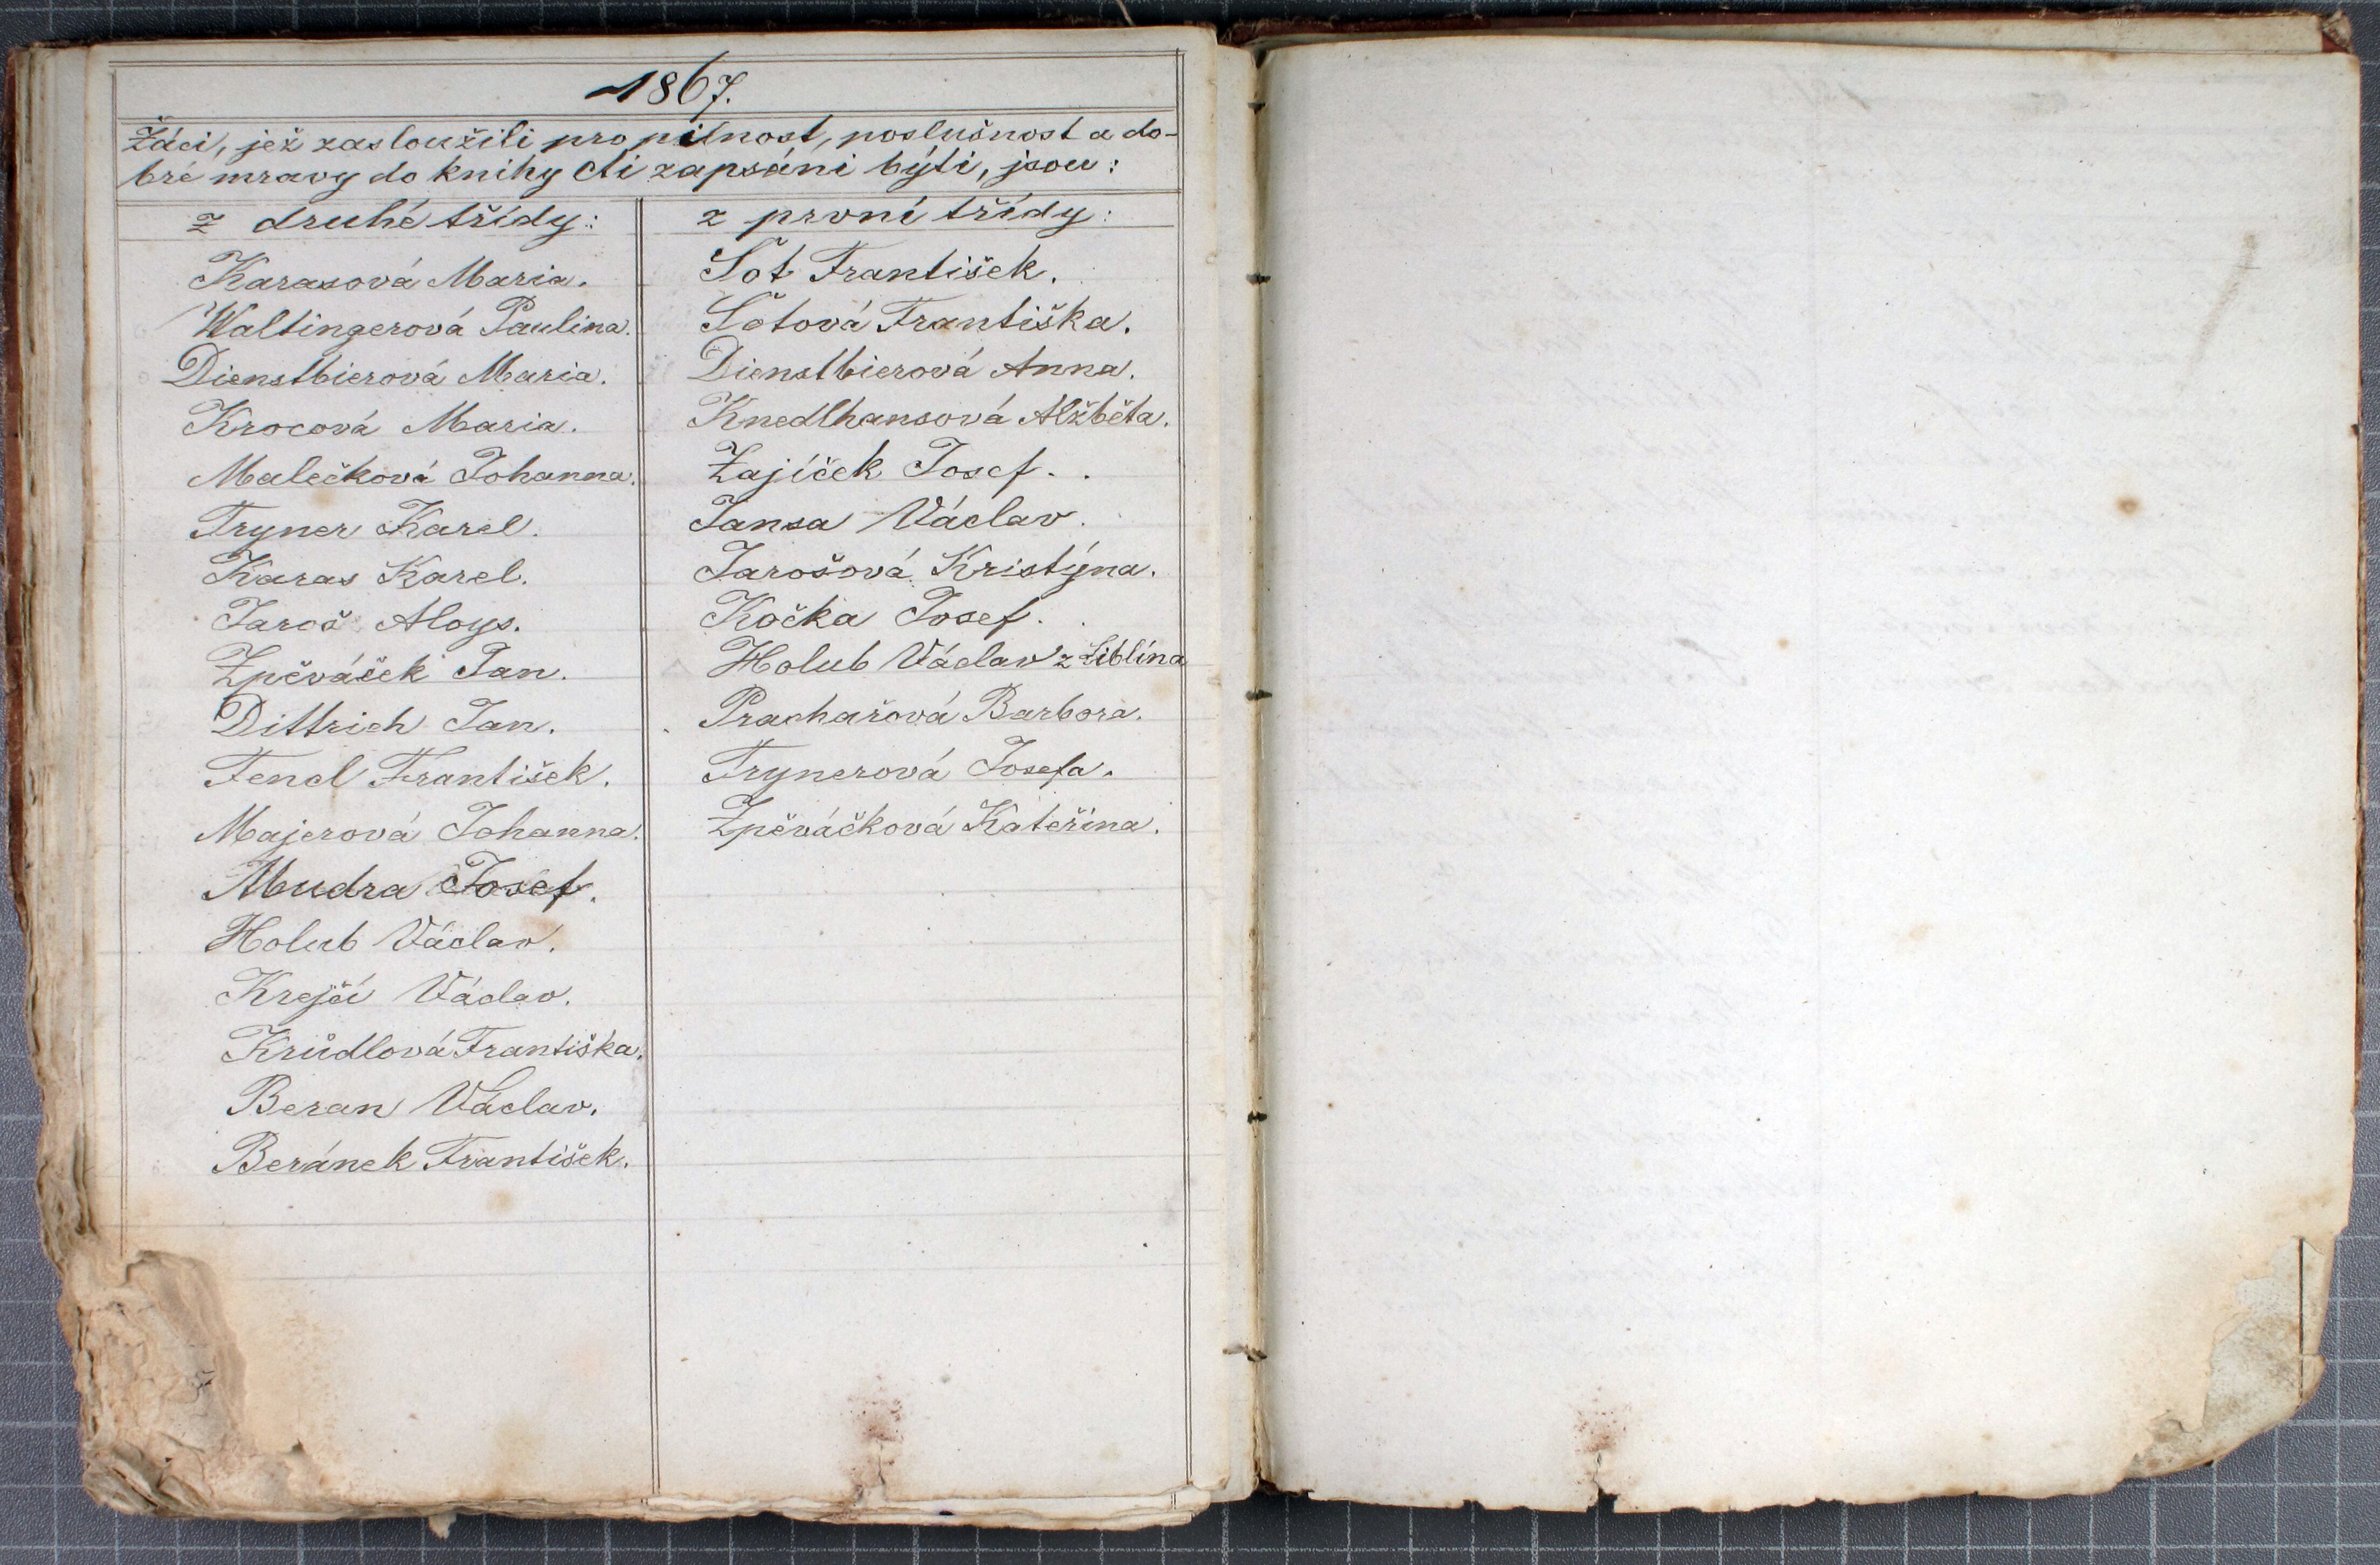 1867.
Žáci, jež zasloužili pro pilnost, poslušnost a do-
bré mravy do knihy cti zapsáni býti, jsou:
z druhé třídy:
Karasová Maria.
Waltingerová Paulina.
Dienstbierová Maria.
Krocová Maria.
Malečková Johanna.
Tryner Karel.
Karas Karel.
Jaroš Aloys.
Zpěváček Jan.
Dittrich Jan.
Fencl František.
Majerová Johanna.
Mudra Josef.
Holub Václav.
Krejčí Václav.
Krůdlová Františka.
Beran Václav.
Beránek František.
z první třídy:
Šot František.
Šotová Františka.
Dienstbierová Anna.
Knedlhansová Alžběta.
Zajíček Josef.
Jansa Václav.
Jarošová Kristýna.
Kočka Josef.
Holub Václav z Liblína
Prachařová Barbora.
Trynerová Josefa.
Zpěváčková Kateřina.